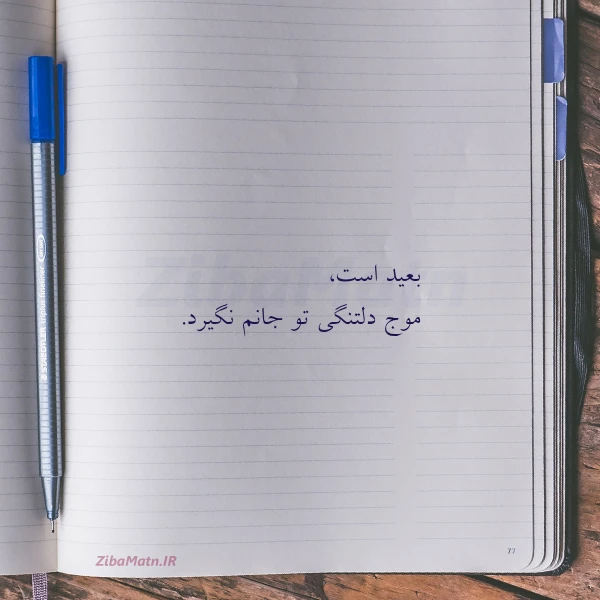 بعید است،
موج دلتنگی تو جانم نگیرد.
ZibaMatn
77
ZibaMatn.IR